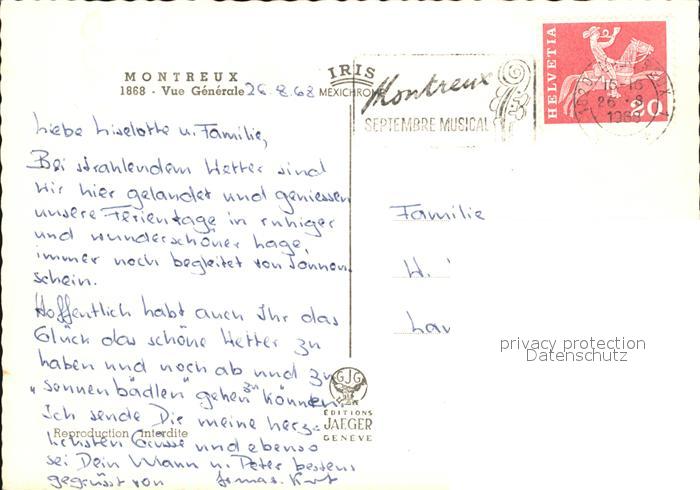 MONTREUX
1868 - Vue Générale
26.8.68
IRIS
MEXICHROME
Montreux
SEPTEMBRE MUSICAL
HELVETIA
20
16-18
26.-8
1968
Liebe Liselotte u. Familie,
Bei strahlendem Wetter sind
wir hier gelandet und geniessen
unsere Ferientage in ruhiger
und wunderschöner Lage,
immer noch begleitet von Sonnen
schein.
Hoffentlich habt auch Ihr das
Glück das schöne Wetter zu
haben und noch ab und zu
"sonnenbädlen" gehen zu können.
Ich sende Dir meine herz-
lichsten Grüsse und ebenso
sei Dein Mann u. Peter bestens
gegrüsst von
Familie
W.
privacy protection
Datenschutz
GJG
EDITIONS
JAEGER
GENÈVE
Reproduction interdite